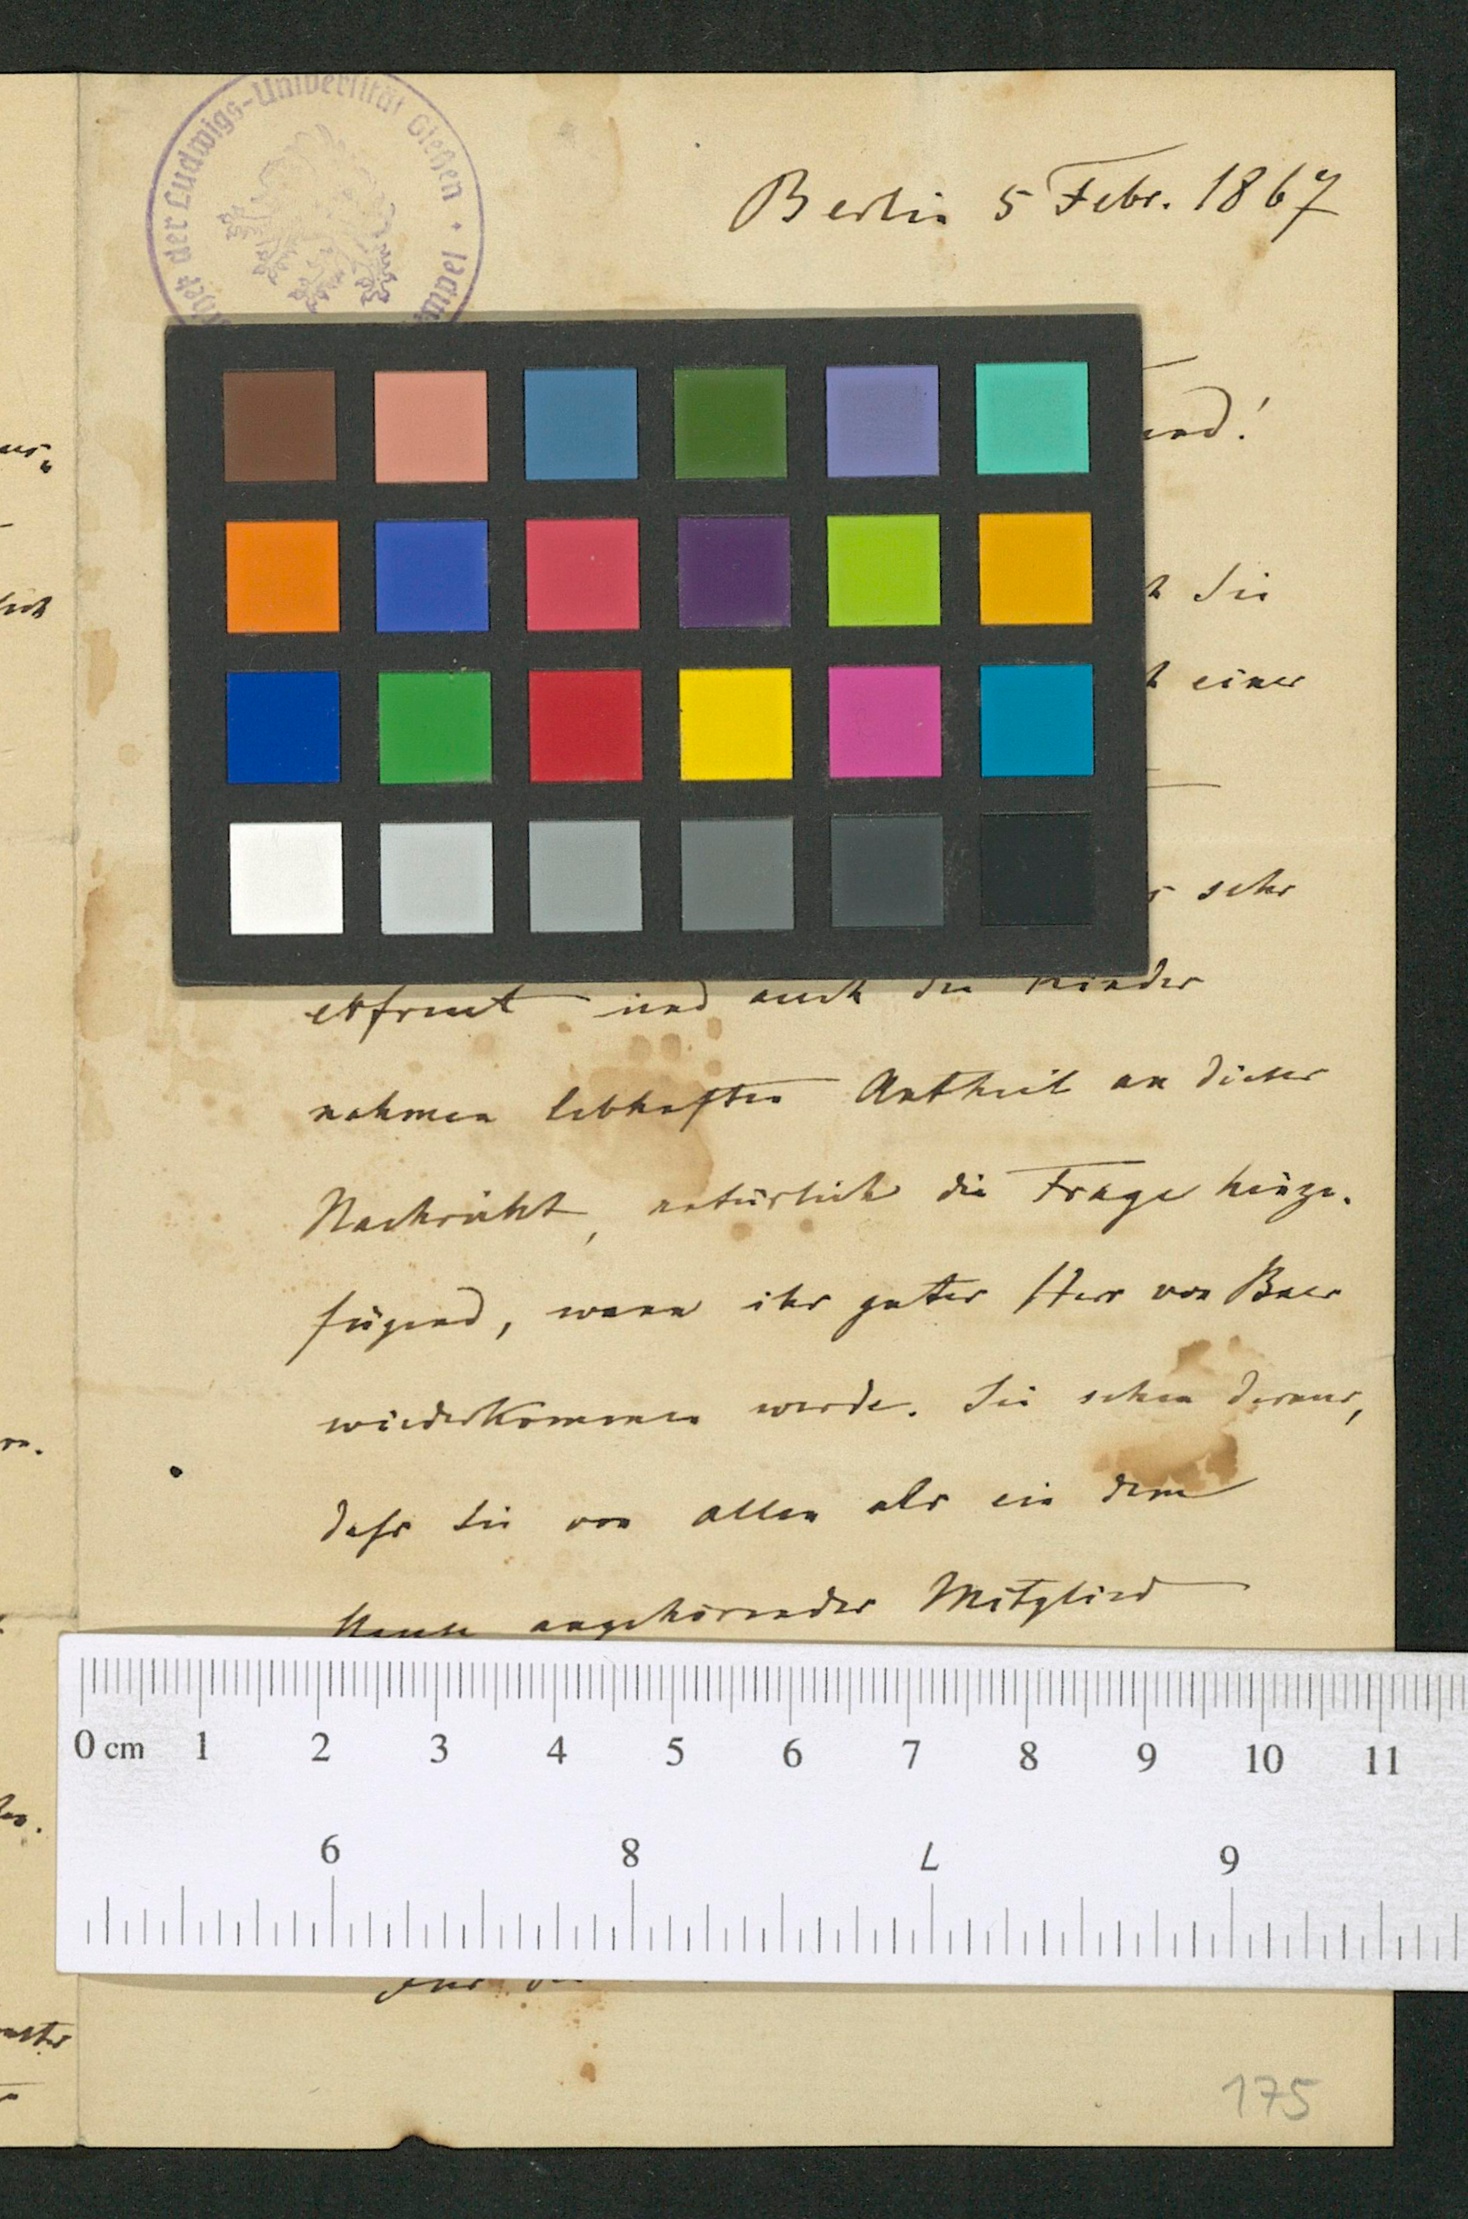 der Ludwigs-Universität Gießen
Berlin 5 Febr. 1867
Sie
einer
sehr
erfreut und auch die Kinder
nahmen lebhaften Antheil an dieser
Nachricht, natürlich die Frage hinzu-
fügend, wann ihr guter Herr von Baer
wiederkommen werde. Sie sehen daraus,
dass Sie von allen als ein dem
Hause angehörender Mitglied
0 cm 1 2 3 4 5 6 7 8 9 10 11
9 8 7 6
175